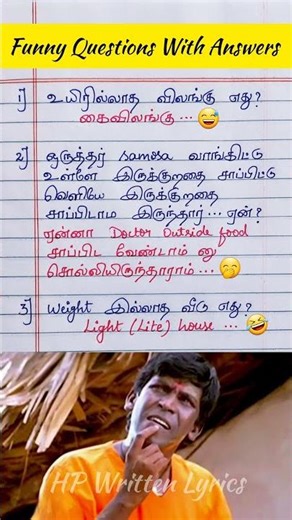 Funny Questions With Answers
1) உயிரில்லாத விலங்கு எது?
கைவிலங்கு... 😅
2) ஒருத்தர் samosa வாங்கிட்டு
உள்ளே இருக்குறதை சாப்பிட்டு
வெளியே இருக்குறதை
சாப்பிடாம இருந்தார்... ஏன்?
ஏன்னா Doctor Outside food
சாப்பிட வேண்டாம் னு
சொல்லியிருந்தாராம்... 🤭
3) Weight இல்லாத வீடு எது?
Light (Lite) house ... 🤣
HP Written Lyrics